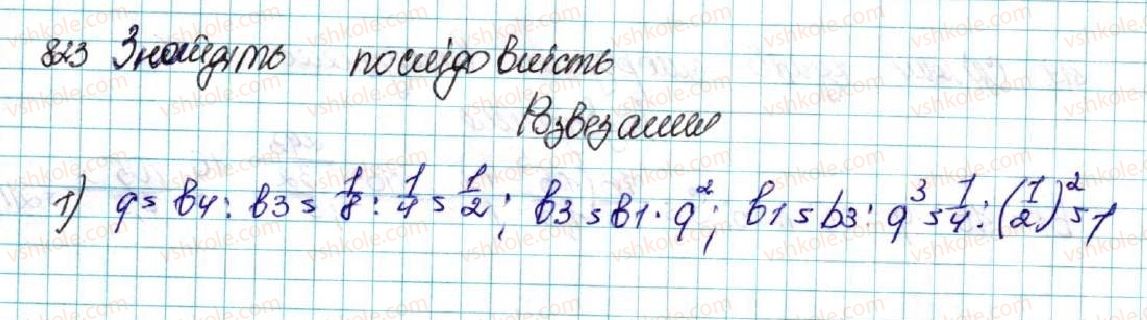 823 Знайдіть послідовність
Розвезання
1) q = b4 : b3 = 1/8 : 1/4 = 1/2 ; b3 = b1 · q² ; b1 = b3 : q³ = 1/4 : (1/2)² = 1